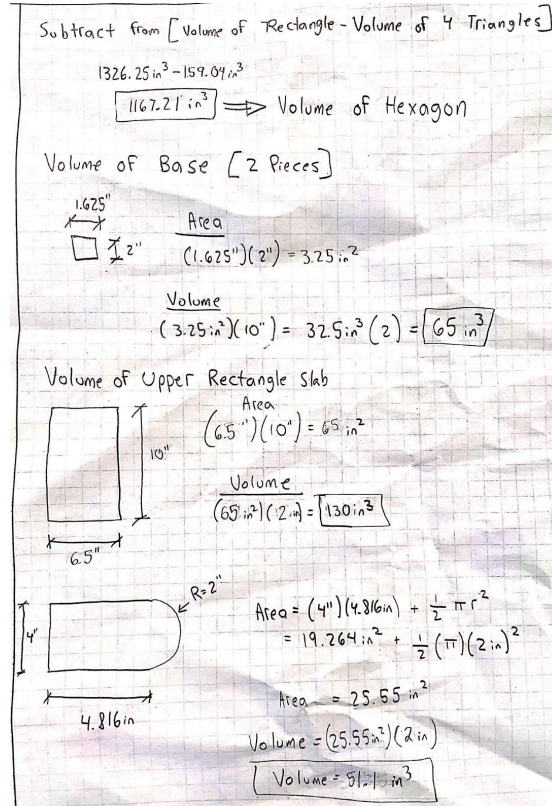 Subtract from [Volume of Rectangle - Volume of 4 Triangles]
1326.25 in³ - 159.04 in³
1167.21 in³ ⟹ Volume of Hexagon
Volume of Base [2 Pieces]
1.625"
2"
Area
(1.625")(2") = 3.25 in²
Volume
(3.25 in²)(10") = 32.5 in³ (2) = 65 in³
Volume of Upper Rectangle Slab
Area
(6.5")(10") = 65 in²
10"
Volume
(65 in²)(2 in) = 130 in³
6.5"
R=2"
4"
Area = (4")(4.816in) + ½ π r²
= 19.264 in² + ½ (π)(2 in)²
Area = 25.55 in²
4.816in
Volume = (25.55in²)(2 in)
Volume = 51.1 in³